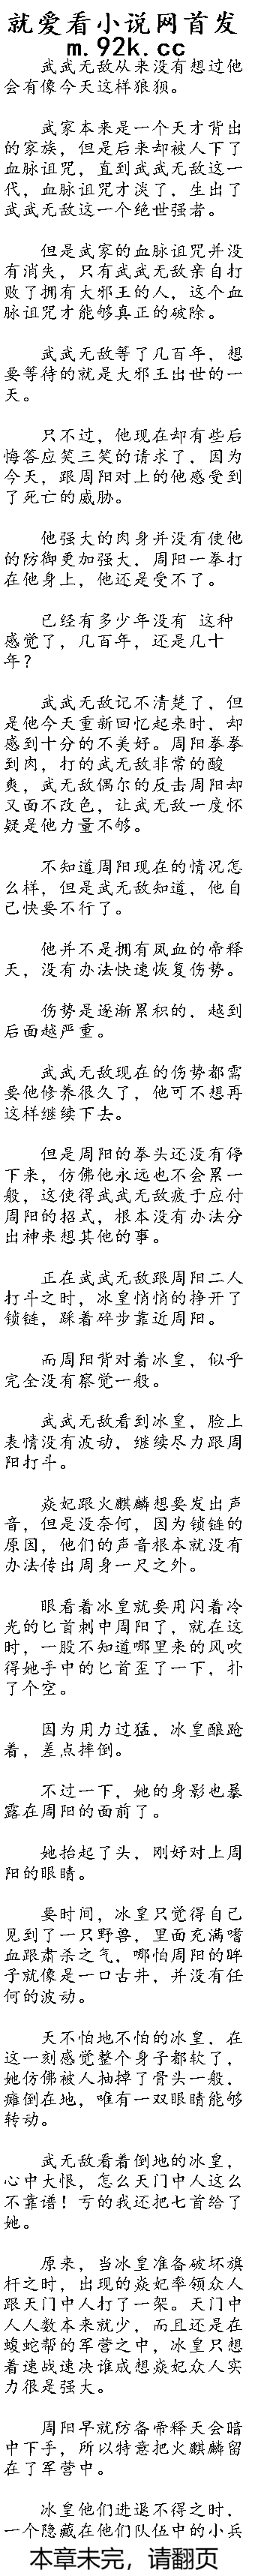 就爱看小说网首发
m.92k.cc
武武无敌从来没有想过他
会有像今天这样狼狈。
武家本来是一个天才背出
的家族，但是后来却被人下了
血脉诅咒，直到武武无敌这一
代，血脉诅咒才淡了，生出了
武武无敌这一个绝世强者。
但是武家的血脉诅咒并没
有消失，只有武武无敌亲自打
败了拥有大邪王的人，这个血
脉诅咒才能够真正的破除。
武武无敌等了几百年，想
要等待的就是大邪王出世的一
天。
只不过，他现在却有些后
悔答应笑三笑的请求了，因为
今天，跟周阳对上的他感受到
了死亡的威胁。
他强大的肉身并没有使他
的防御更加强大，周阳一拳打
在他身上，他还是受不了。
已经有多少年没有 这种
感觉了，几百年，还是几十
年？
武武无敌记不清楚了，但
是他今天重新回忆起来时，却
感到十分的不美好。周阳拳拳
到肉，打的武无敌非常的酸
爽，武无敌偶尔的反击周阳却
又面不改色，让武无敌一度怀
疑是他力量不够。
不知道周阳现在的情况怎
么样，但是武无敌知道，他自
己快要不行了。
他并不是拥有凤血的帝释
天，没有办法快速恢复伤势。
伤势是逐渐累积的，越到
后面越严重。
武武无敌现在的伤势都需
要他修养很久了，他可不想再
这样继续下去。
但是周阳的拳头还没有停
下来，仿佛他永远也不会累一
般，这使得武武无敌疲于应付
周阳的招式，根本没有办法分
出神来想其他的事。
正在武武无敌跟周阳二人
打斗之时，冰皇悄悄的挣开了
锁链，踩着碎步靠近周阳。
而周阳背对着冰皇，似乎
完全没有察觉一般。
武武无敌看到冰皇，脸上
表情没有波动，继续尽力跟周
阳打斗。
焱妃跟火麒麟想要发出声
音，但是没奈何，因为锁链的
原因，他们的声音根本就没有
办法传出周身一尺之外。
眼看着冰皇就要用闪着冷
光的匕首刺中周阳了，就在这
时，一股不知道哪里来的风吹
得她手中的匕首歪了一下，扑
了个空。
因为用力过猛，冰皇酿跄
着，差点摔倒。
不过一下，她的身影也暴
露在周阳的面前了。
她抬起了头，刚好对上周
阳的眼睛。
霎时间，冰皇只觉得自己
见到了一只野兽，里面充满嗜
血跟肃杀之气，哪怕周阳的眸
子就像是一口古井，并没有任
何的波动。
天不怕地不怕的冰皇，在
这一刻感觉整个身子都软了，
她仿佛被人抽掉了骨头一般，
瘫倒在地，唯有一双眼睛能够
转动。
武无敌看着倒地的冰皇，
心中大恨，怎么天门中人这么
不靠谱！亏的我还把七首给了
她。
原来，当冰皇准备破坏旗
杆之时，出现的焱妃率领众人
跟天门中人打了一架。天门中
人人数本来就少，而且还是在
蝮蛇帮的军营之中，冰皇只想
着速战速决谁成想焱妃众人实
力很是强大。
周阳早就防备帝释天会暗
中下手，所以特意把火麒麟留
在了军营中。
冰皇他们进退不得之时，
一个隐藏在他们队伍中的小兵
本章未完，请翻页